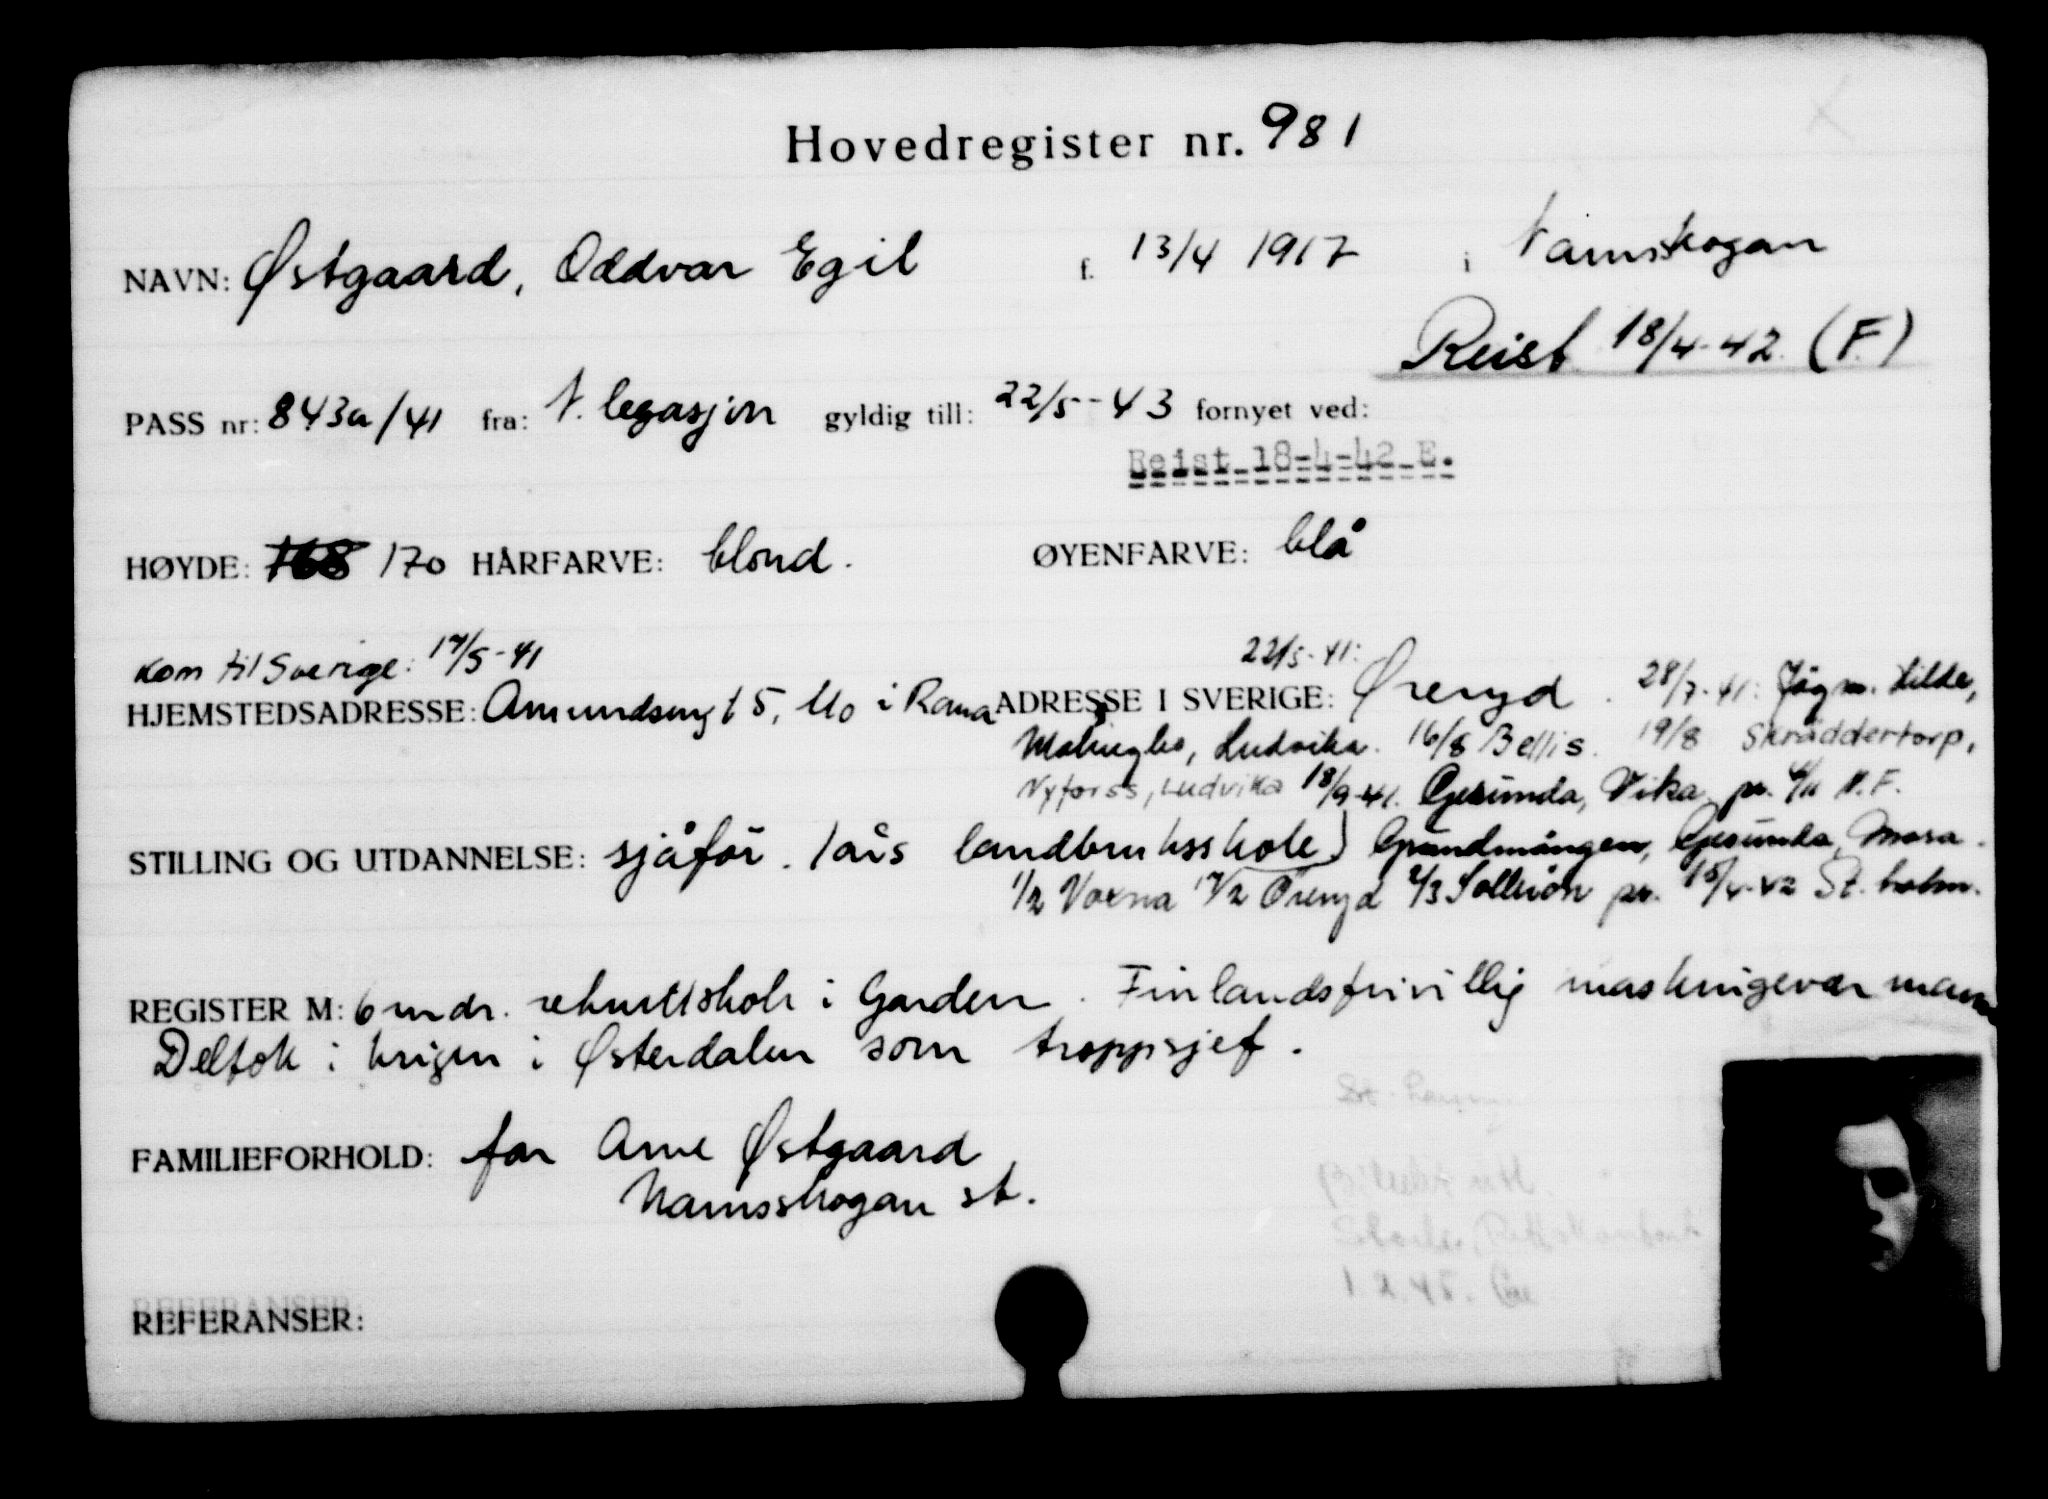 Hovedregister nr. 981
NAVN: Østgaard, Oddvar Egil f. 13/4 1917 i Namskogan
Reist 18/4-42 (F)
PASS nr: 843a/41 fra: N. legasjon gyldig till: 22/5-43 fornyet ved:
Reist 18-4-42 E.
HØYDE: 168 170 HÅRFARVE: blond. ØYENFARVE: blå
Kom til Sverige: 17/5-41 22/5-41:
HJEMSTEDSADRESSE: Amundsengt 5, Mo i Rana ADRESSE I SVERIGE: Øreryd. 28/7-41: Jägm. Lilde,
Malingbo, Ludvika. 16/8 Bellis. 19/8 Skräddertorp,
Nyforss, Ludvika 18/9-41. Gesunda, Vika pr. 4/11 N.F.
STILLING OG UTDANNELSE: sjåfør. 1 års landbruksskole) Grundmången, Gesunda, Mora.
1/2 Voxna 17/2 Öreryd 2/3 Sollerön pr. 15/4-42 St. holm.
REGISTER M: 6 mdr. rekruttskole i Garden. Finlandsfrivillig maskingevær mann
Deltok i krigen i Østerdalen som troppsjef.
FAMILIEFORHOLD: far Arne Østgaard
Namsskogan st.
1.2.45.
REFERANSER: